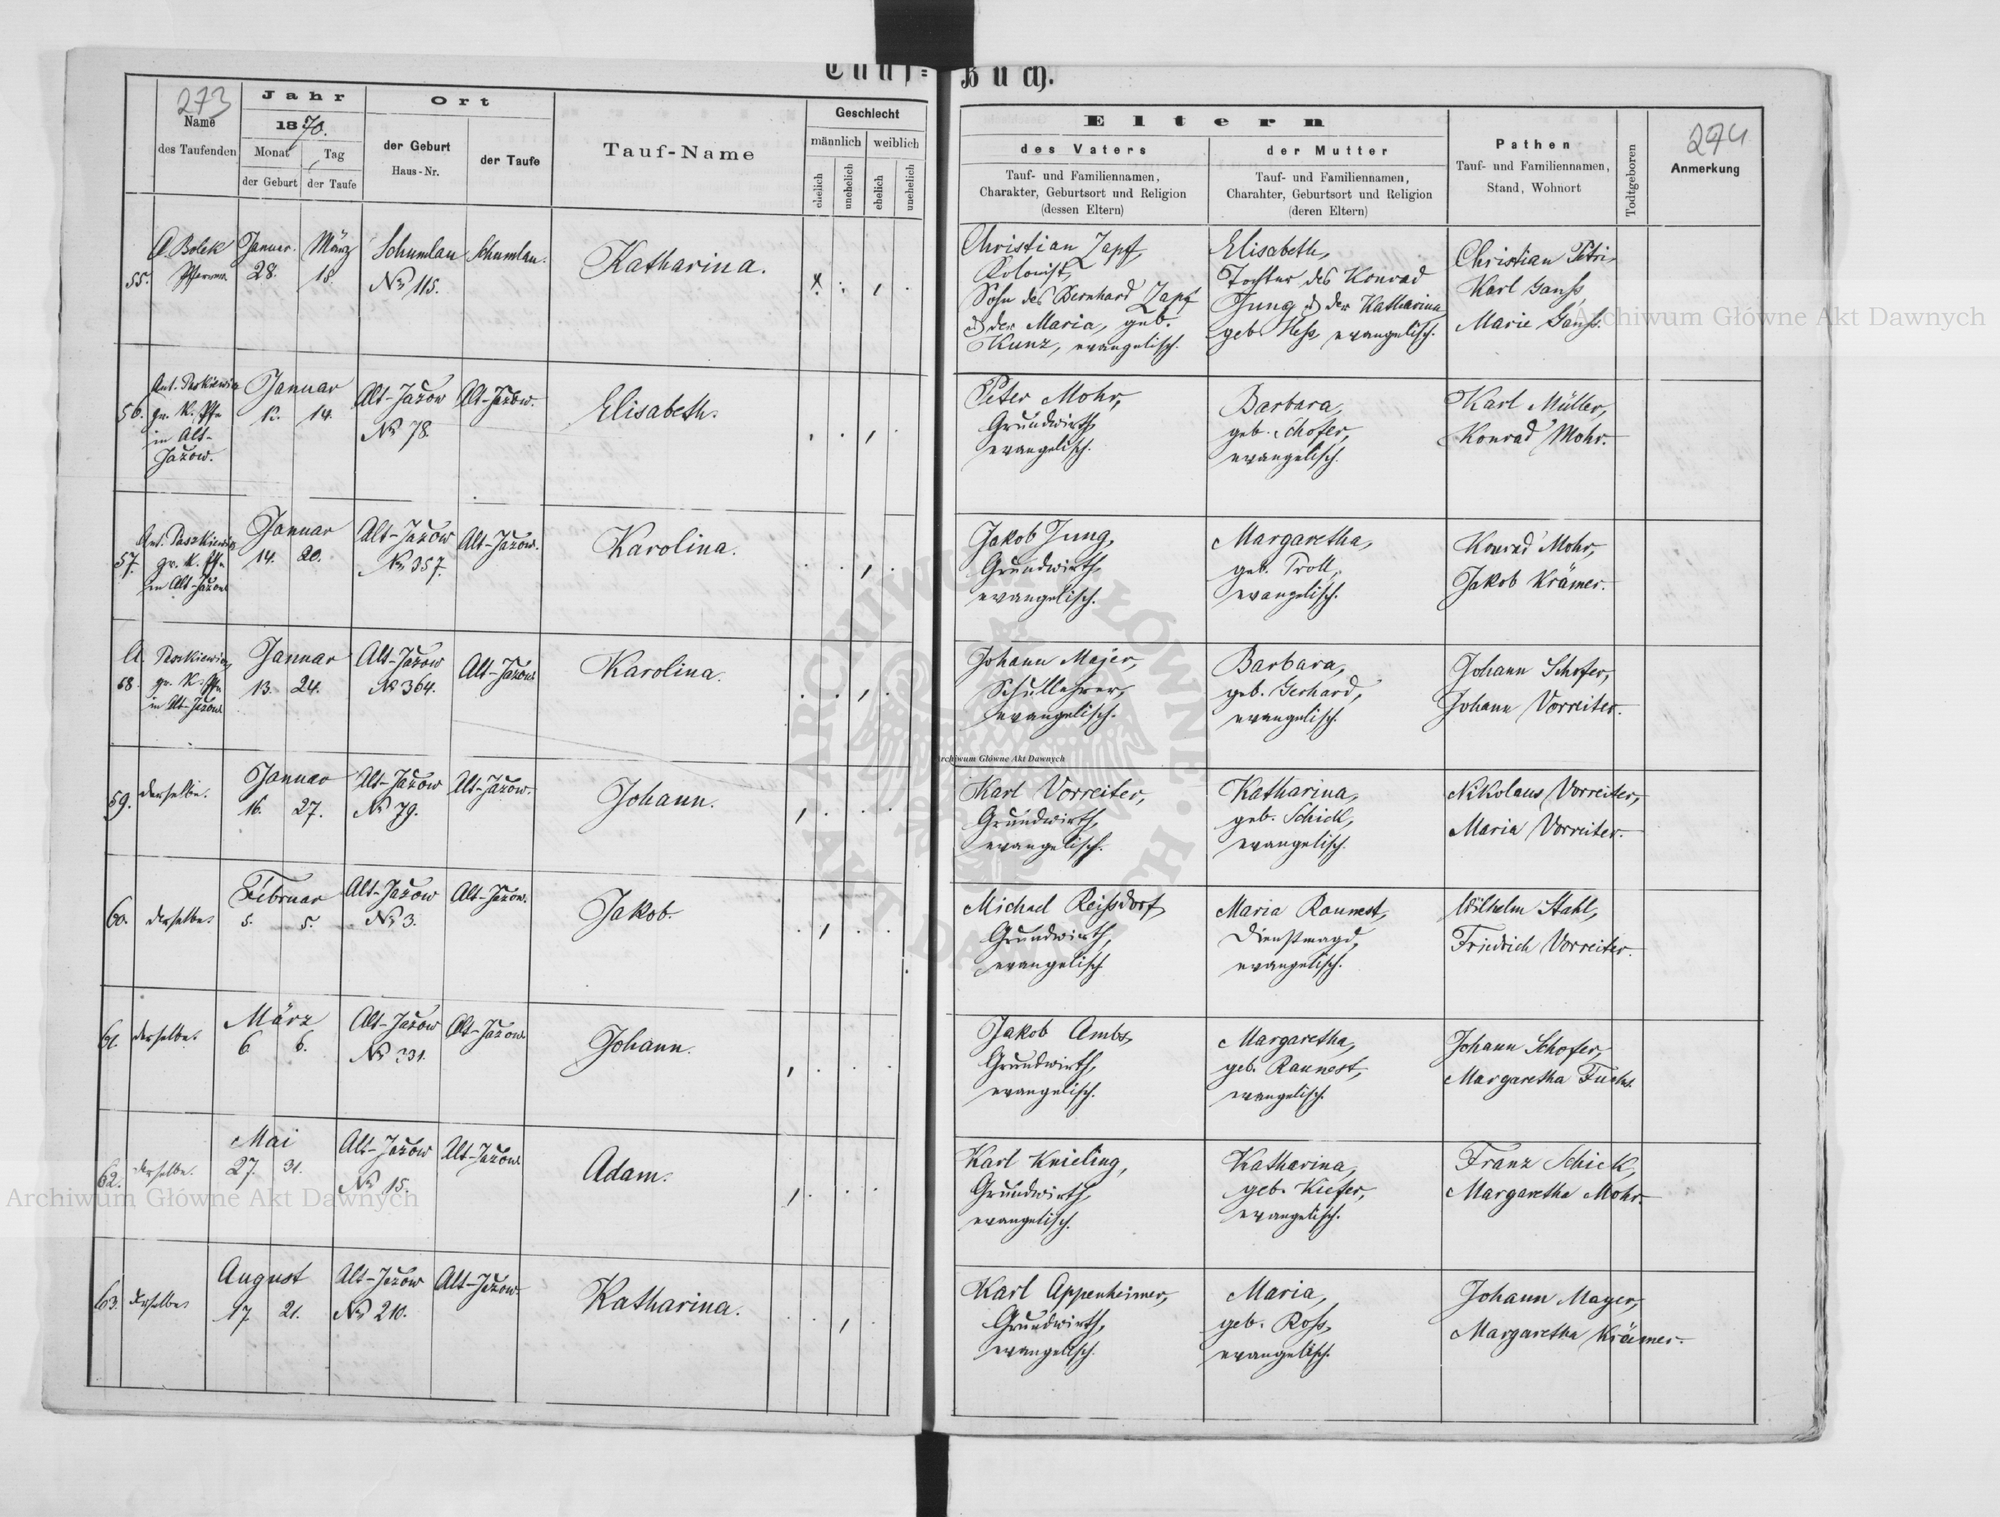 Tauf-Buch.
273
Name
des Taufenden
Jahr
1870.
Monat Tag
der Geburt der Taufe
Ort
der Geburt
Haus-Nr.
der Taufe
Tauf-Name
Geschlecht
männlich weiblich
ehelich unehelich ehelich unehelich
Eltern
des Vaters
Tauf- und Familiennamen,
Charakter, Geburtsort und Religion
(dessen Eltern)
der Mutter
Tauf- und Familiennamen,
Charahter, Geburtsort und Religion
(deren Eltern)
Pathen
Tauf- und Familiennamen,
Stand, Wohnort
Todtgeboren
274
Anmerkung
55.
A. Bolek
Pfarrer
Januar.
28.
März
18.
Schumlau
No 115.
Schumlau.
Katharina.
Christian Zapf,
Kolonist,
Sohn des Bernhard Zapf
& der Maria, geb.
Kunz, evangelisch.
Elisabeth,
Tochter des Konrad
Jung & der Katharina
geb. Heß, evangelisch.
Christian Petri,
Karl Ganß,
Marie Ganß.
56.
Ant. Paszkiewicz
gr. K. Pfr.
in Alt-
Jazow.
Januar
14.
Alt-Jazow
No 78.
Alt-Jazow.
Elisabeth.
Peter Mohr,
Grundwirth,
evangelisch.
Barbara,
geb. Schofer,
evangelisch.
Karl Müller,
Konrad Mohr.
57.
Ant. Paszkiewicz
gr. K. Pfr.
in Alt-Jazow
Januar
14. 20.
Alt-Jazow
No 357.
Alt-Jazow.
Karolina.
Jakob Jung,
Grundwirth,
evangelisch.
Margaretha,
geb. Troll,
evangelisch.
Konrad Mohr,
Jakob Krämer.
58.
A. Paszkiewicz
gr. K. Pfr.
in Alt-Jazow
Januar
13. 24.
Alt-Jazow
No 364.
Alt-Jazow
Karolina.
Johann Majer,
Schullehrer,
evangelisch.
Barbara,
geb. Gerhard,
evangelisch.
Johann Schofer,
Johann Vorreiter.
59.
derselbe.
Januar
16. 27.
Alt-Jazow
No 79.
Alt-Jazow.
Johann.
Karl Vorreiter,
Grundwirth,
evangelisch.
Katharina,
geb. Schick,
evangelisch.
Nikolaus Vorreiter,
Maria Vorreiter.
60.
derselbe.
Februar
5. 5.
Alt-Jazow
No 3.
Alt-Jazow.
Jakob.
Michael Reißdorf,
Grundwirth,
evangelisch
Maria Raunest,
Dienstmagd,
evangelisch.
Wilhelm Stahl,
Friedrich Vorreiter.
61.
derselbe.
März
6 6.
Alt-Jazow
No 331.
Alt-Jazow
Johann.
Jakob Ambs,
Grundwirth,
evangelisch.
Margaretha,
geb. Raunest,
evangelisch.
Johann Schofer,
Margaretha Fuchs.
62.
derselbe.
Mai
27. 31.
Alt-Jazow
No 15.
Alt-Jazow
Adam.
Karl Knieling,
Grundwirth,
evangelisch.
Katharina,
geb. Kiefer,
evangelisch.
Franz Schick,
Margaretha Mohr.
63.
derselbe
August
17. 21.
Alt-Jazow
No 210.
Alt-Jazow
Katharina.
Karl Appenheimer,
Grundwirth,
evangelisch.
Maria,
geb. Roß,
evangelisch.
Johann Mayer,
Margaretha Krämer.
Archiwum Główne Akt Dawnych
Archiwum Główne Akt Dawnych
Archiwum Główne Akt Dawnych
ARCHIWUM GŁÓWNE AKT DAWNYCH